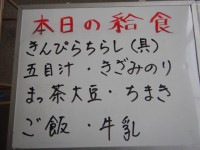 本日の給食
きんぴらちらし(具)
五目汁・きざみのり
まっ茶大豆・ちまき
ご飯・牛乳